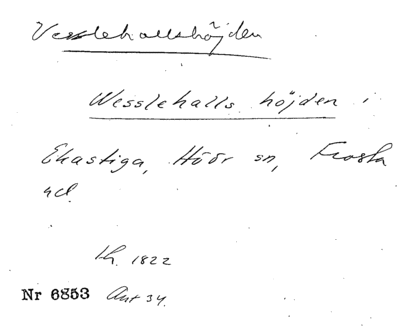 Vesslehallshöjden
Wesslehalls höjden i
Ekastiga, Höör sn, Frosta
hd.
lh. 1822
Nr 6853 Ant 34.